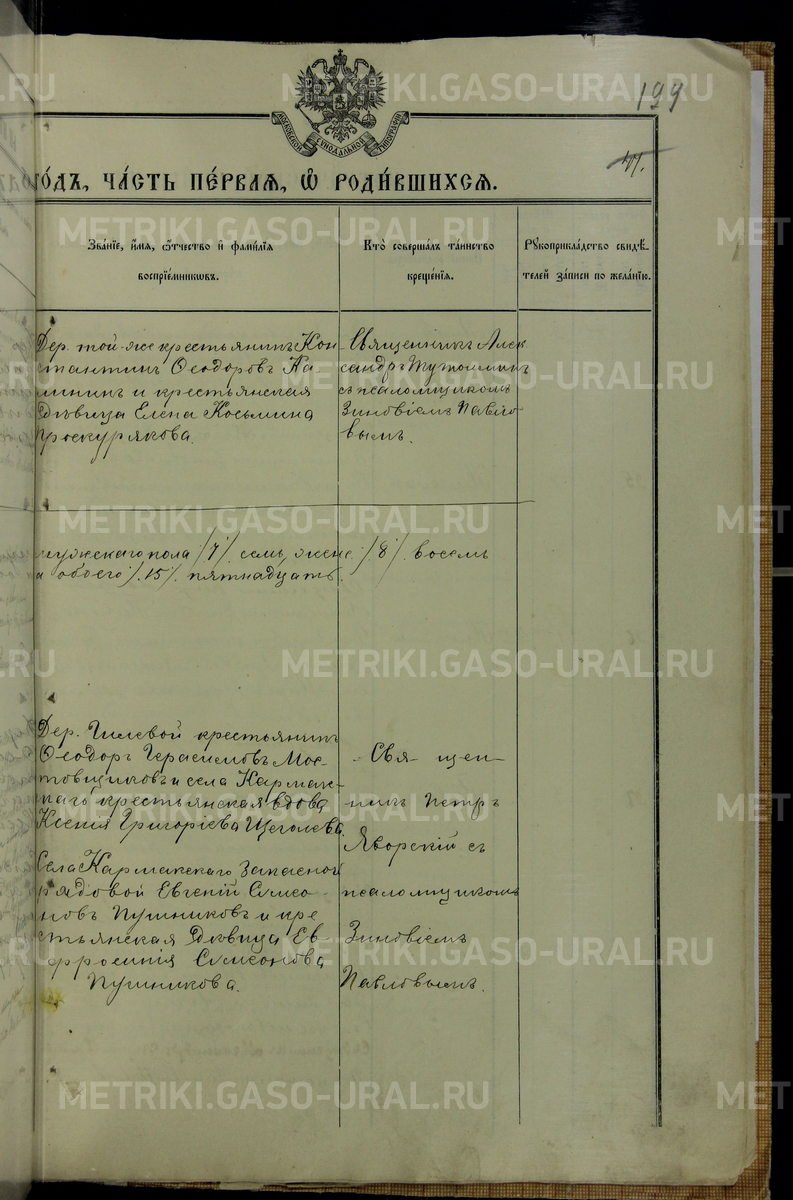 199
41.
МОСКОВСКОЙ СѴНОДАЛЬНОЙ ТИПОГРАФІИ
го́дъ, ча́сть пе́рваѧ, ѡ҆ роди́вшихсѧ.
Зва́нїе, и҆́мѧ, ѻ҆́тчество и҆ фами́лїѧ
воспрїе́мникѡвъ.
Кто̀ соверша́лъ та́инство
креще́нїѧ.
Рꙋкоприкла́дство свидѣ́-
телей за́писи по жела́нїю.
Дер. той-же крестьянинъ Кон
стантинъ Ѳеодоровъ Ка
лининъ и крестьянская
Дѣвица Елена Косьмина
Проскурякова.
Священникъ Алек
сандръ Тутолминъ
съ псаломщикомъ
Зиновіемъ Павло
вымъ.
мужескаго пола /7/. семь, женс. /8/. восемь
а обоего /.15/. пятнадцать.
Дер. Гилевой крестьянинъ
Ѳеодоръ Герасимовъ Мос-
товщиковъ и села Кармак-
скаго крестьянская вдова
Ксенія Григоріева Щеголева.
Села Кармакскаго Запасной
рядовой Евгеній Симео-
новъ Пушниковъ и кре
стьянская Дѣвица Ев
фросинія Симеонова
Пушникова.
Свя-щен-
никъ Петръ
Яворскій съ
псаломщикомъ
Зиновіемъ
Павловымъ.
METRIKI.GASO-URAL.RU